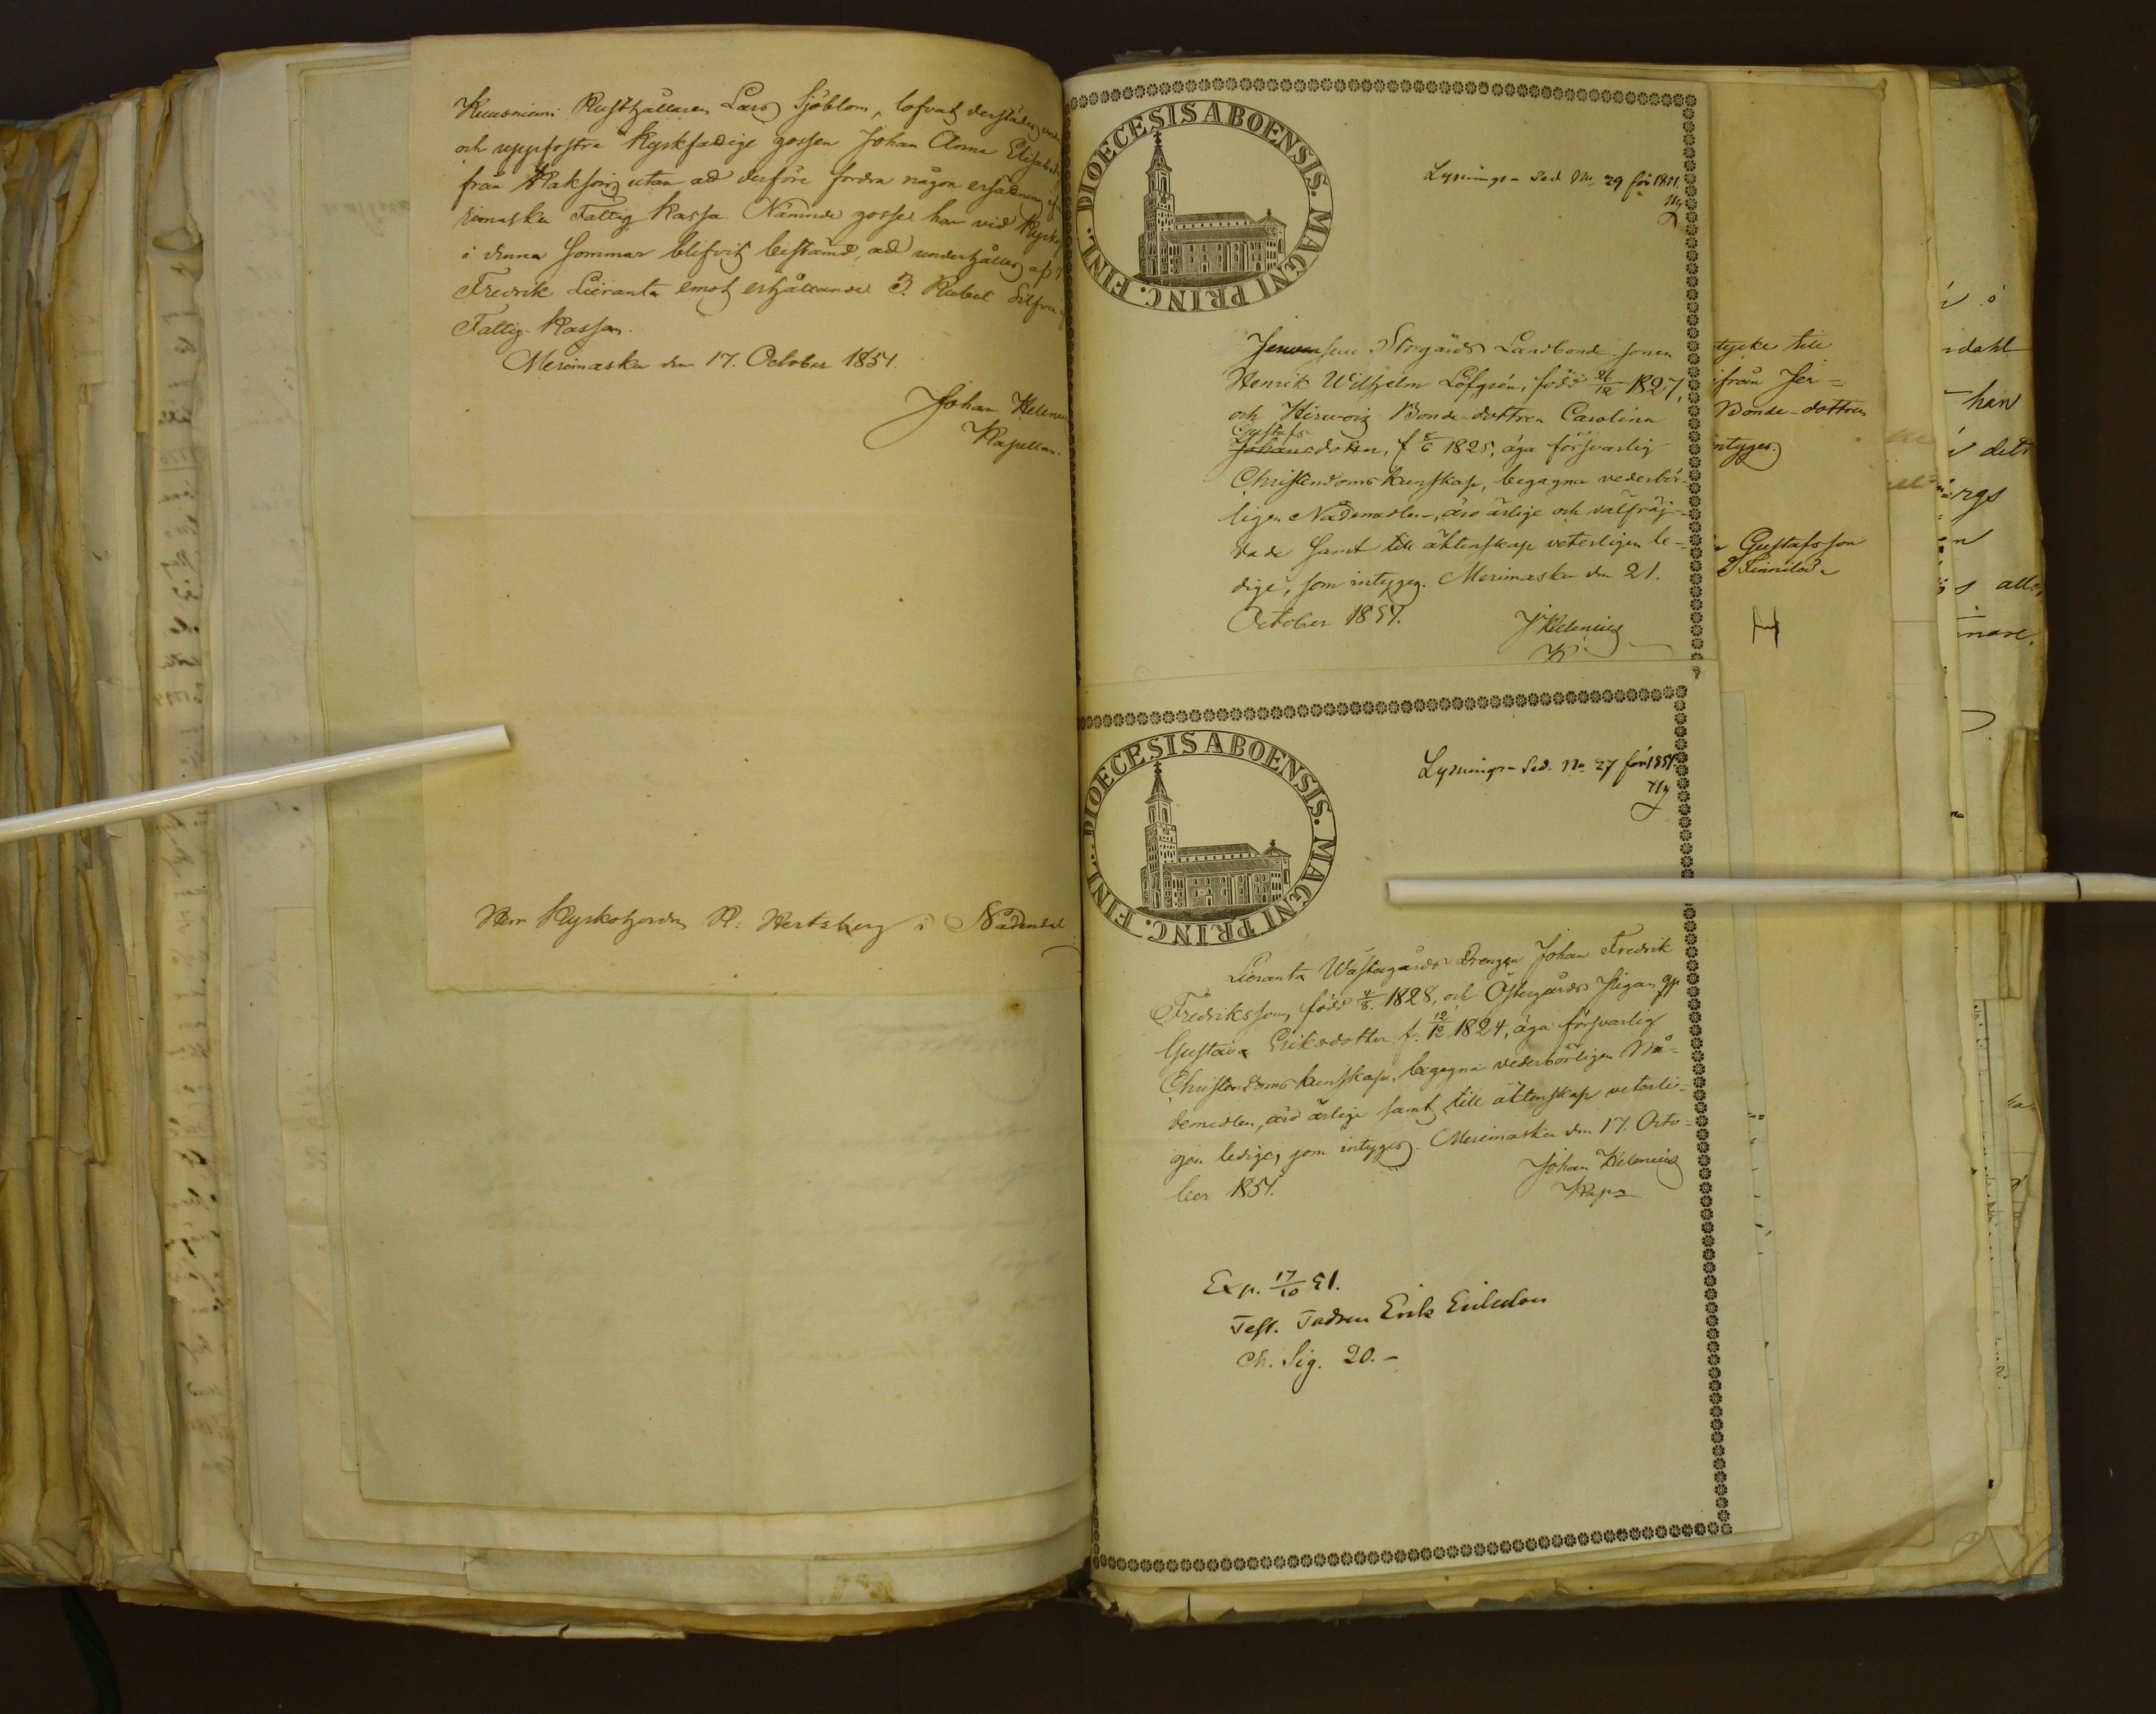 Kuusniemi Rusthållaren Lars Sjöblom, lofvat derstädes
och uppfostra kyrkfattige gossen Johan Anna Elisabets
från Raksoin, utan att derföre fordra någon ersättning
rimasku Fattig Kassa. Nämnde gosse har vid Kyrko
i denna sommar blifvit bestämd, att underhållas af
Fredrik Lieranta emot erhållande 3. Rubel Silfver
Fattig-Kassan.
Merimasku den 17. October 1851.
Johan Helenius
Kapellan.
Herr Kyrkoherden R. Hertsberg i Nådendal
DIOECESIS ABOENSIS. MAGNI PRINC. FINL.
Lysnings-Sed No 29 för 1851.
Storgårds Landbonde sonen
Henrik Wilhelm Löfgrén, född 21/12 1827,
och Hirvoix Bonde-dottren Carolina
Gustafs
Johansdotter, f 8/6 1825, äga försvarlig
Christendoms kunskap, begagna vederbör-
ligen Nådemedlen, äro ärlige och välfräj-
dade samt till äktenskap veterligen le-
dige, som intygas. Merimasku den 21.
October 1851.
J Helenius
K
tycke till
ifrån Jer=
Bonde-dottren
intyges.
Gustafsson
DIOECESIS ABOENSIS. MAGNI PRINC. FINL.
Lysnings-Sed. No 27 för 1851.
Lieranta Wästergårds Drengen Johan Fredrik
Fredriksson, född 4/3. 1828, och Östergårds Pigan
Gustava Eriksdotter f. 12/12 1824, äga försvarlig
Christendoms kunskap, begagna vederbörligen Nå=
demedlen, äro ärlige samt till äktenskap veterli=
gen lediga, som intygas. Merimasku den 17. Octo=
ber 1851.
Johan Helenius
Kap
Exp. 17/10 51.
Test. Fadren Erik Erikson
Ch. Sig. 20.-